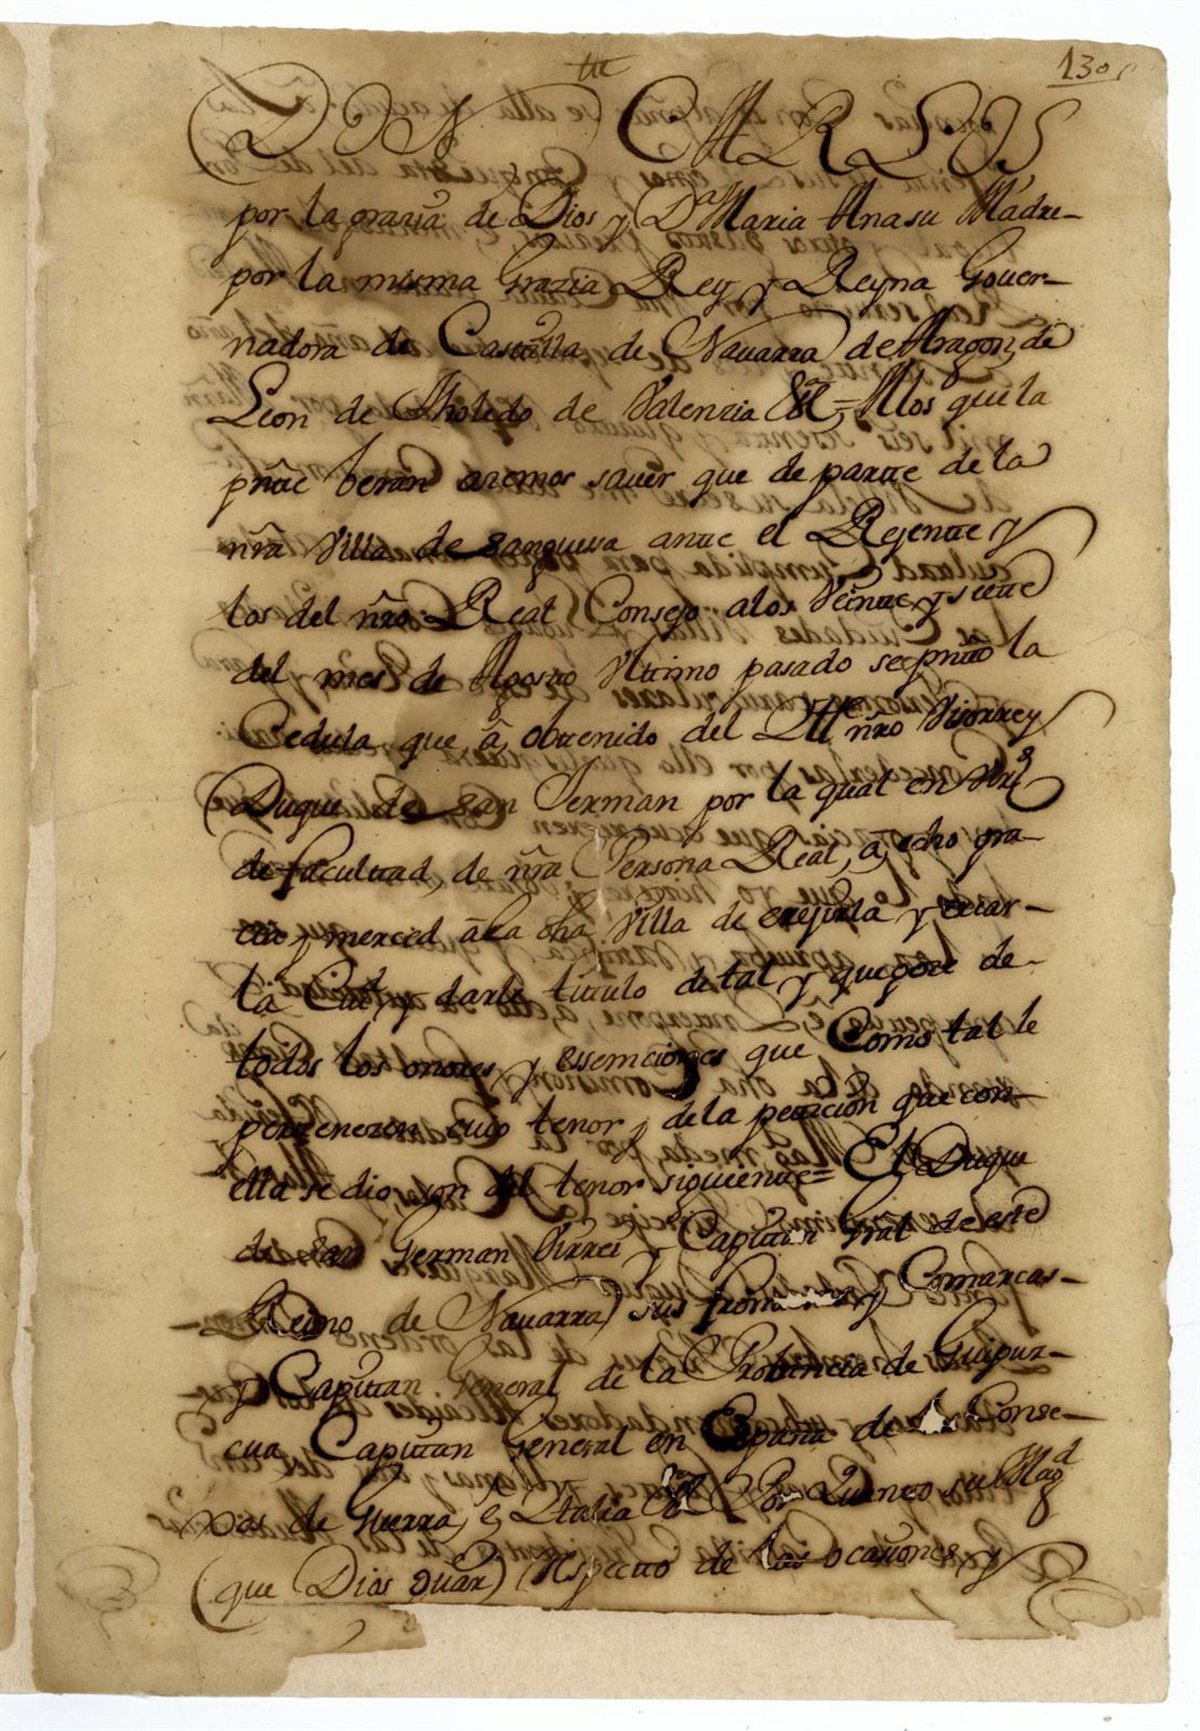 130
DON CARLOS
por la grazia de Dios y Dª Maria Ana su Madre
por la misma Grazia Rey y Reyna Gover-
nadora de Castilla de Nauarra de Aragon, de
Leon de Tholedo de Valenzia &ª = Alos que la
pñte beran azemos sauer que de parte de la
nrã Villa de Sanguessa ante el Rejente y
los del nrõ Real Consejo alos Veinte y siete
del mes de Agosto Vltimo pasado se pñto la
Cedula que â obtenido del nrõ Visorrey
Duque de San Jerman por la qual en
de facultad, de nrã Persona Real, â, echo gra-
cia y merced âla dha Villa de erejirla y criar-
la Ciud y darle titulo de tal y que goze de-
todos los onores, y essemciones que Como tal le
pertenezen cuio tenor y dela peticion que con-
ella se dio, son del tenor siguiente = El Duque
de San German Virrei y Capitan Gral de este
Reino de Nauarra sus fronteras y Comarcas-
y Capitan General de la Probincia de Guipuz-
cua Capitan General en España de los Conse-
xos de Guerra, e, Italia &ª Por Quanto su Magd
(que Dios guãr) Respecto de las ocassiones, y